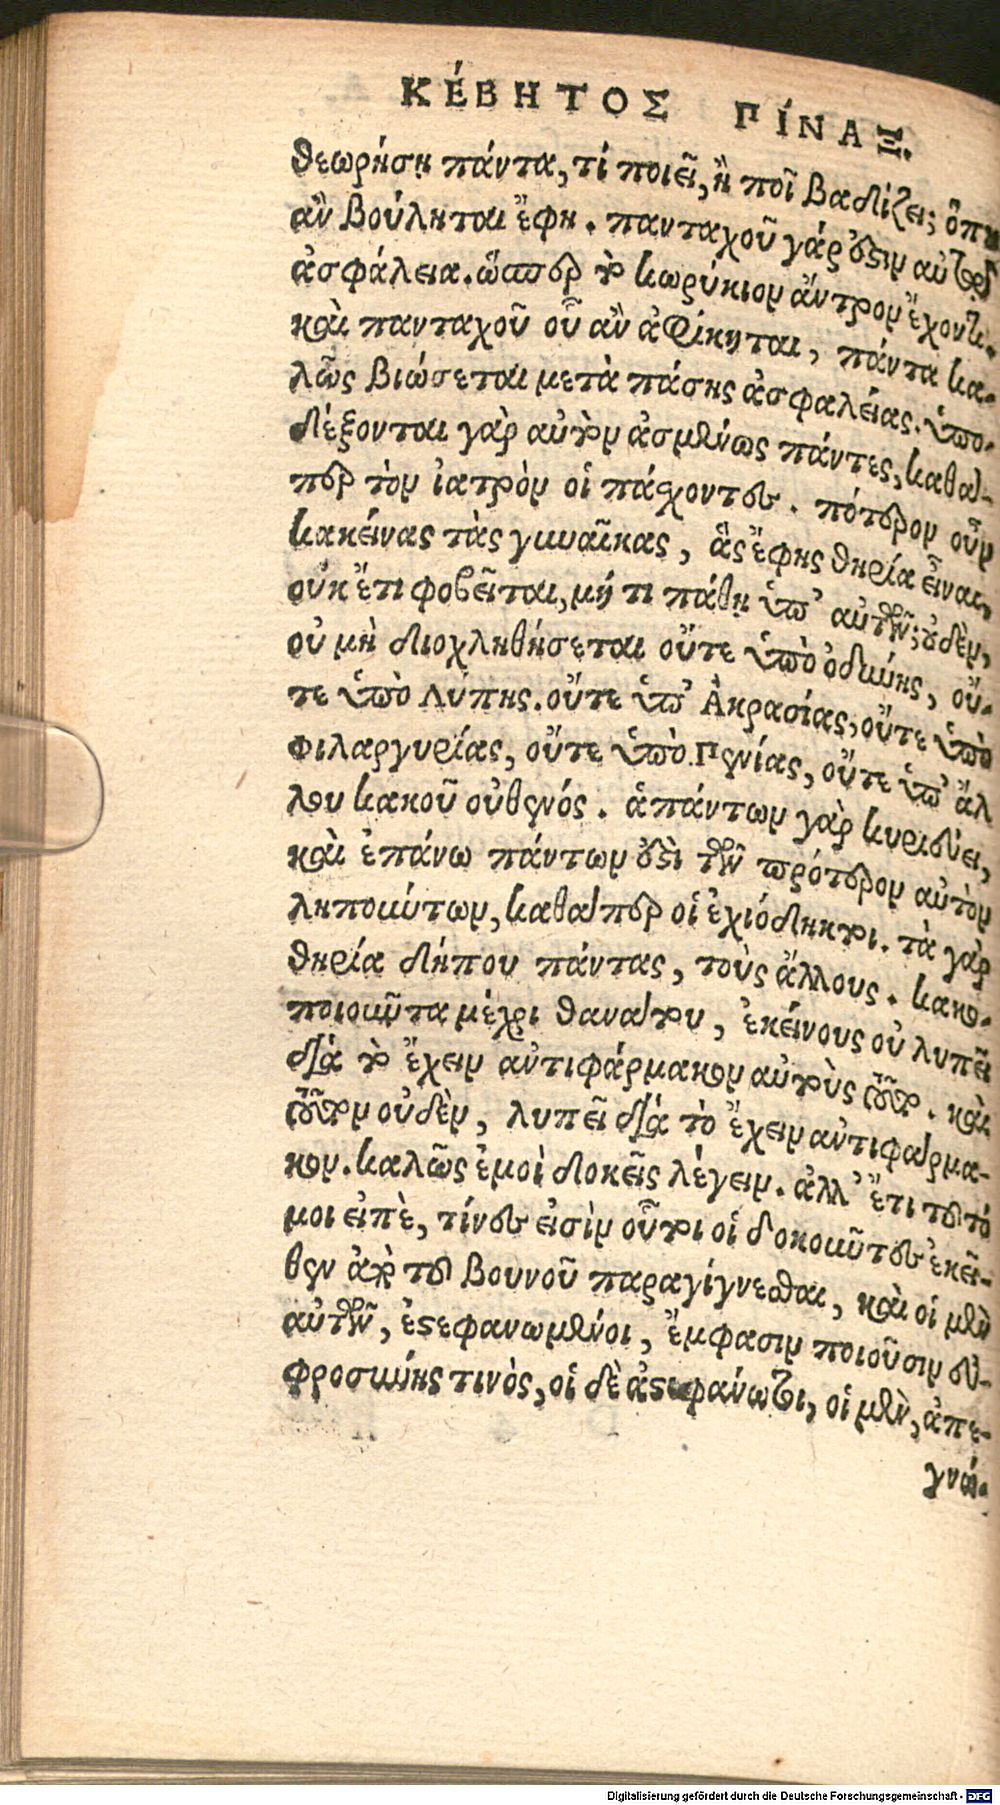 ΚΈΒΗΤΟΣ ΠΊΝΑΞ.
θεωρήσῃ πάντα, τί ποιεῖ, ἢ ποῖ βαδίζει; ὅπῃ
ἂν βούληται ἔφη. πανταχοῦ γάρ ὅστιν αὐτῷ
ἀσφάλεια. ὥσπερ τὸ κωρύκιον ἄντρον ἔχοντι.
καὶ πανταχοῦ οὗ ἂν ἀφίκηται, πάντα κα-
λῶς βιώσεται μετὰ πάσης ἀσφαλείας. ὑπο-
δέξονται γὰρ αὐτὸν ἀσμένως πάντες, καθά-
περ τὸν ἰατρὸν οἱ πάσχοντες. πότερον οὖν
κακείνας τὰς γυναῖκας, ἃς ἔφης θηρία εἶναι,
οὐκ ἔτι φοβεῖται, μή τι πάθῃ ὑπ' αὐτῶν; οὐδὲν,
οὐ μὴ διοχληθήσεται οὔτε ὑπὸ ὀδύνης, οὔ-
τε ὑπὸ Λύπης. οὔτε ὑπ' Ἀκρασίας, οὔτε ὑπὸ
φιλαργυρίας, οὔτε ὑπὸ Πενίας, οὔτε ὑπ' ἄλ
λου κακοῦ οὐθενός. ἁπάντων γὰρ κυριεύει,
καὶ ἐπάνω πάντων ὅστὶ τῶν πρότερον αὐτὸν
λυπούντων, καθάπερ οἱ ἐχιόδηκτοι. τὰ γὰρ
θηρία δήπου πάντας, τοὺς ἄλλους. κακο-
ποιοῦντα μέχρι θανάτου, ἐκείνους οὐ λυπεῖ
διὰ τὸ ἔχειν αὐτιφάρμακον αὐτοὺς οὕτω. καὶ
τοῦτον οὐδὲν, λυπεῖ διὰ τὸ ἔχειν αὐτιφάρμα-
κον. καλῶς ἐμοὶ δοκεῖς λέγειν. ἀλλ' ἔτι τοῦτό
μοι εἰπὲ, τίνες εἰσὶν οὗτοι οἱ δοκοῦντες ἐκεῖ-
θεν ἀπὸ τοῦ βουνοῦ παραγίγνεσθαι, καὶ οἱ μὲν
αὐτῶν, ἐστεφανωμένοι, ἔμφασιν ποιοῦσιν εὐ-
φροσύνης τινὸς, οἱ δὲ ἀστεφάνωτοι, οἱ μὲν, ἀπε-
γνώ-
Digitalisierung gefördert durch die Deutsche Forschungsgemeinschaft - DFG